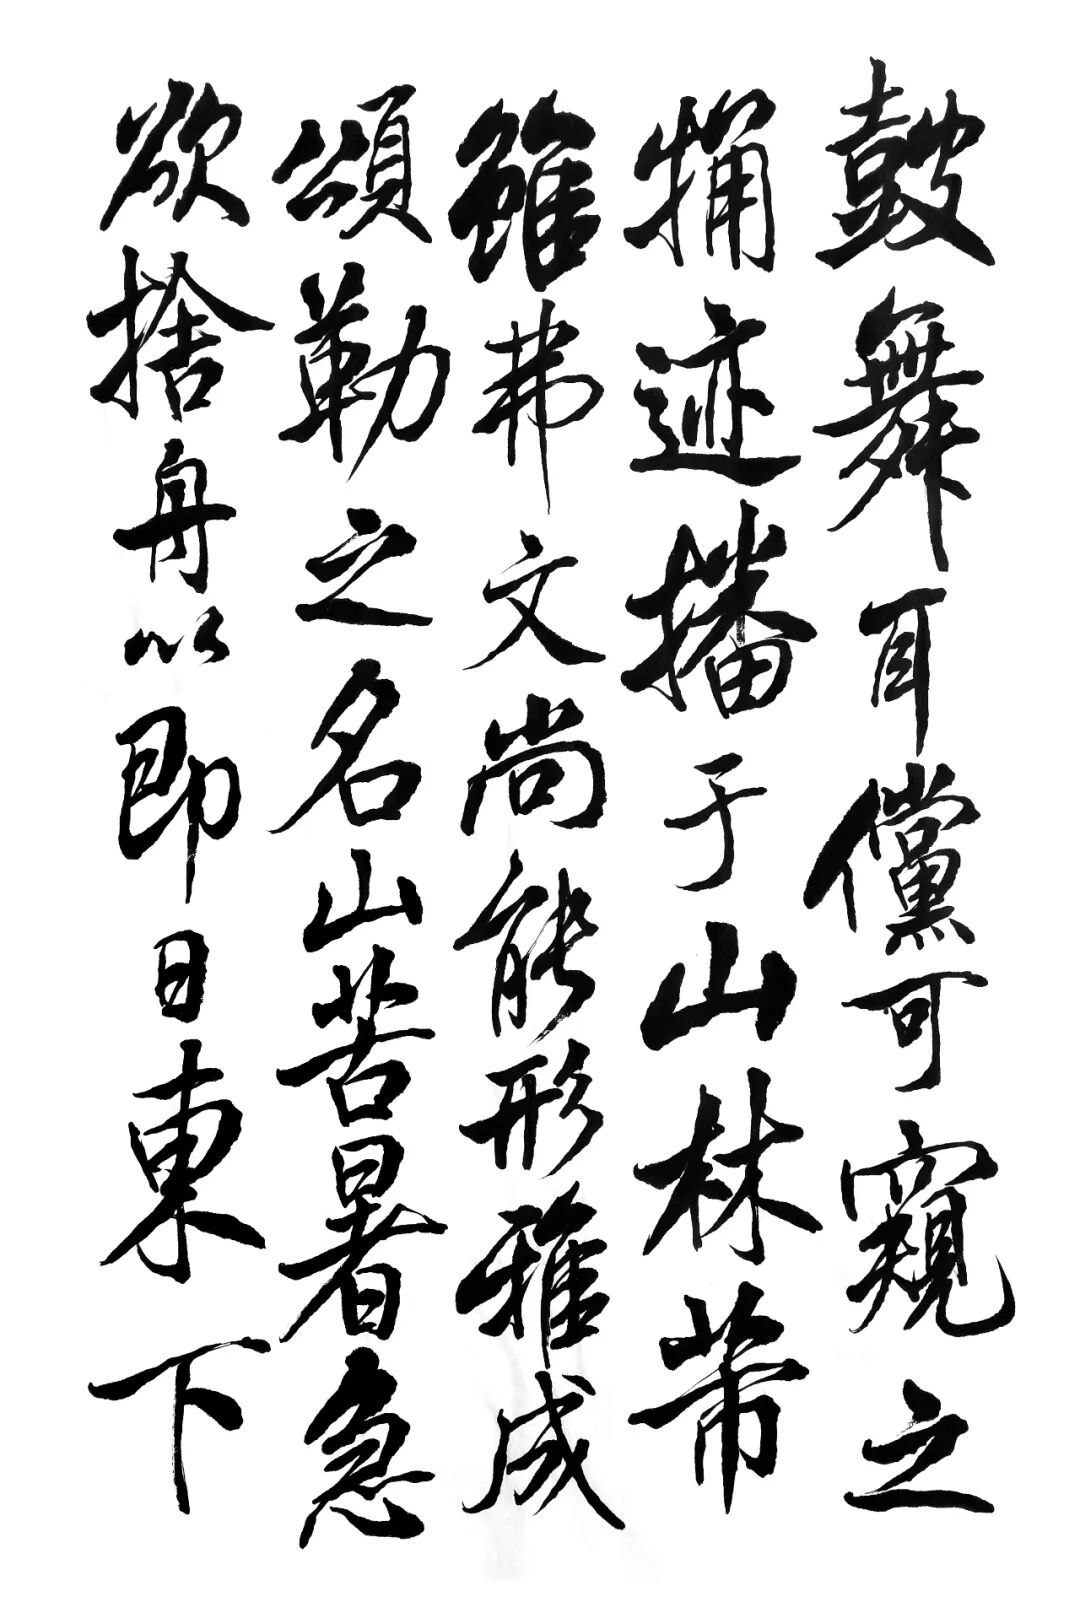 鼓舞耳儻可窺之
迹播于山林芾
雖弗文尚能形雅成
頌勒之名山苦暑急
欲捨舟以即日東下